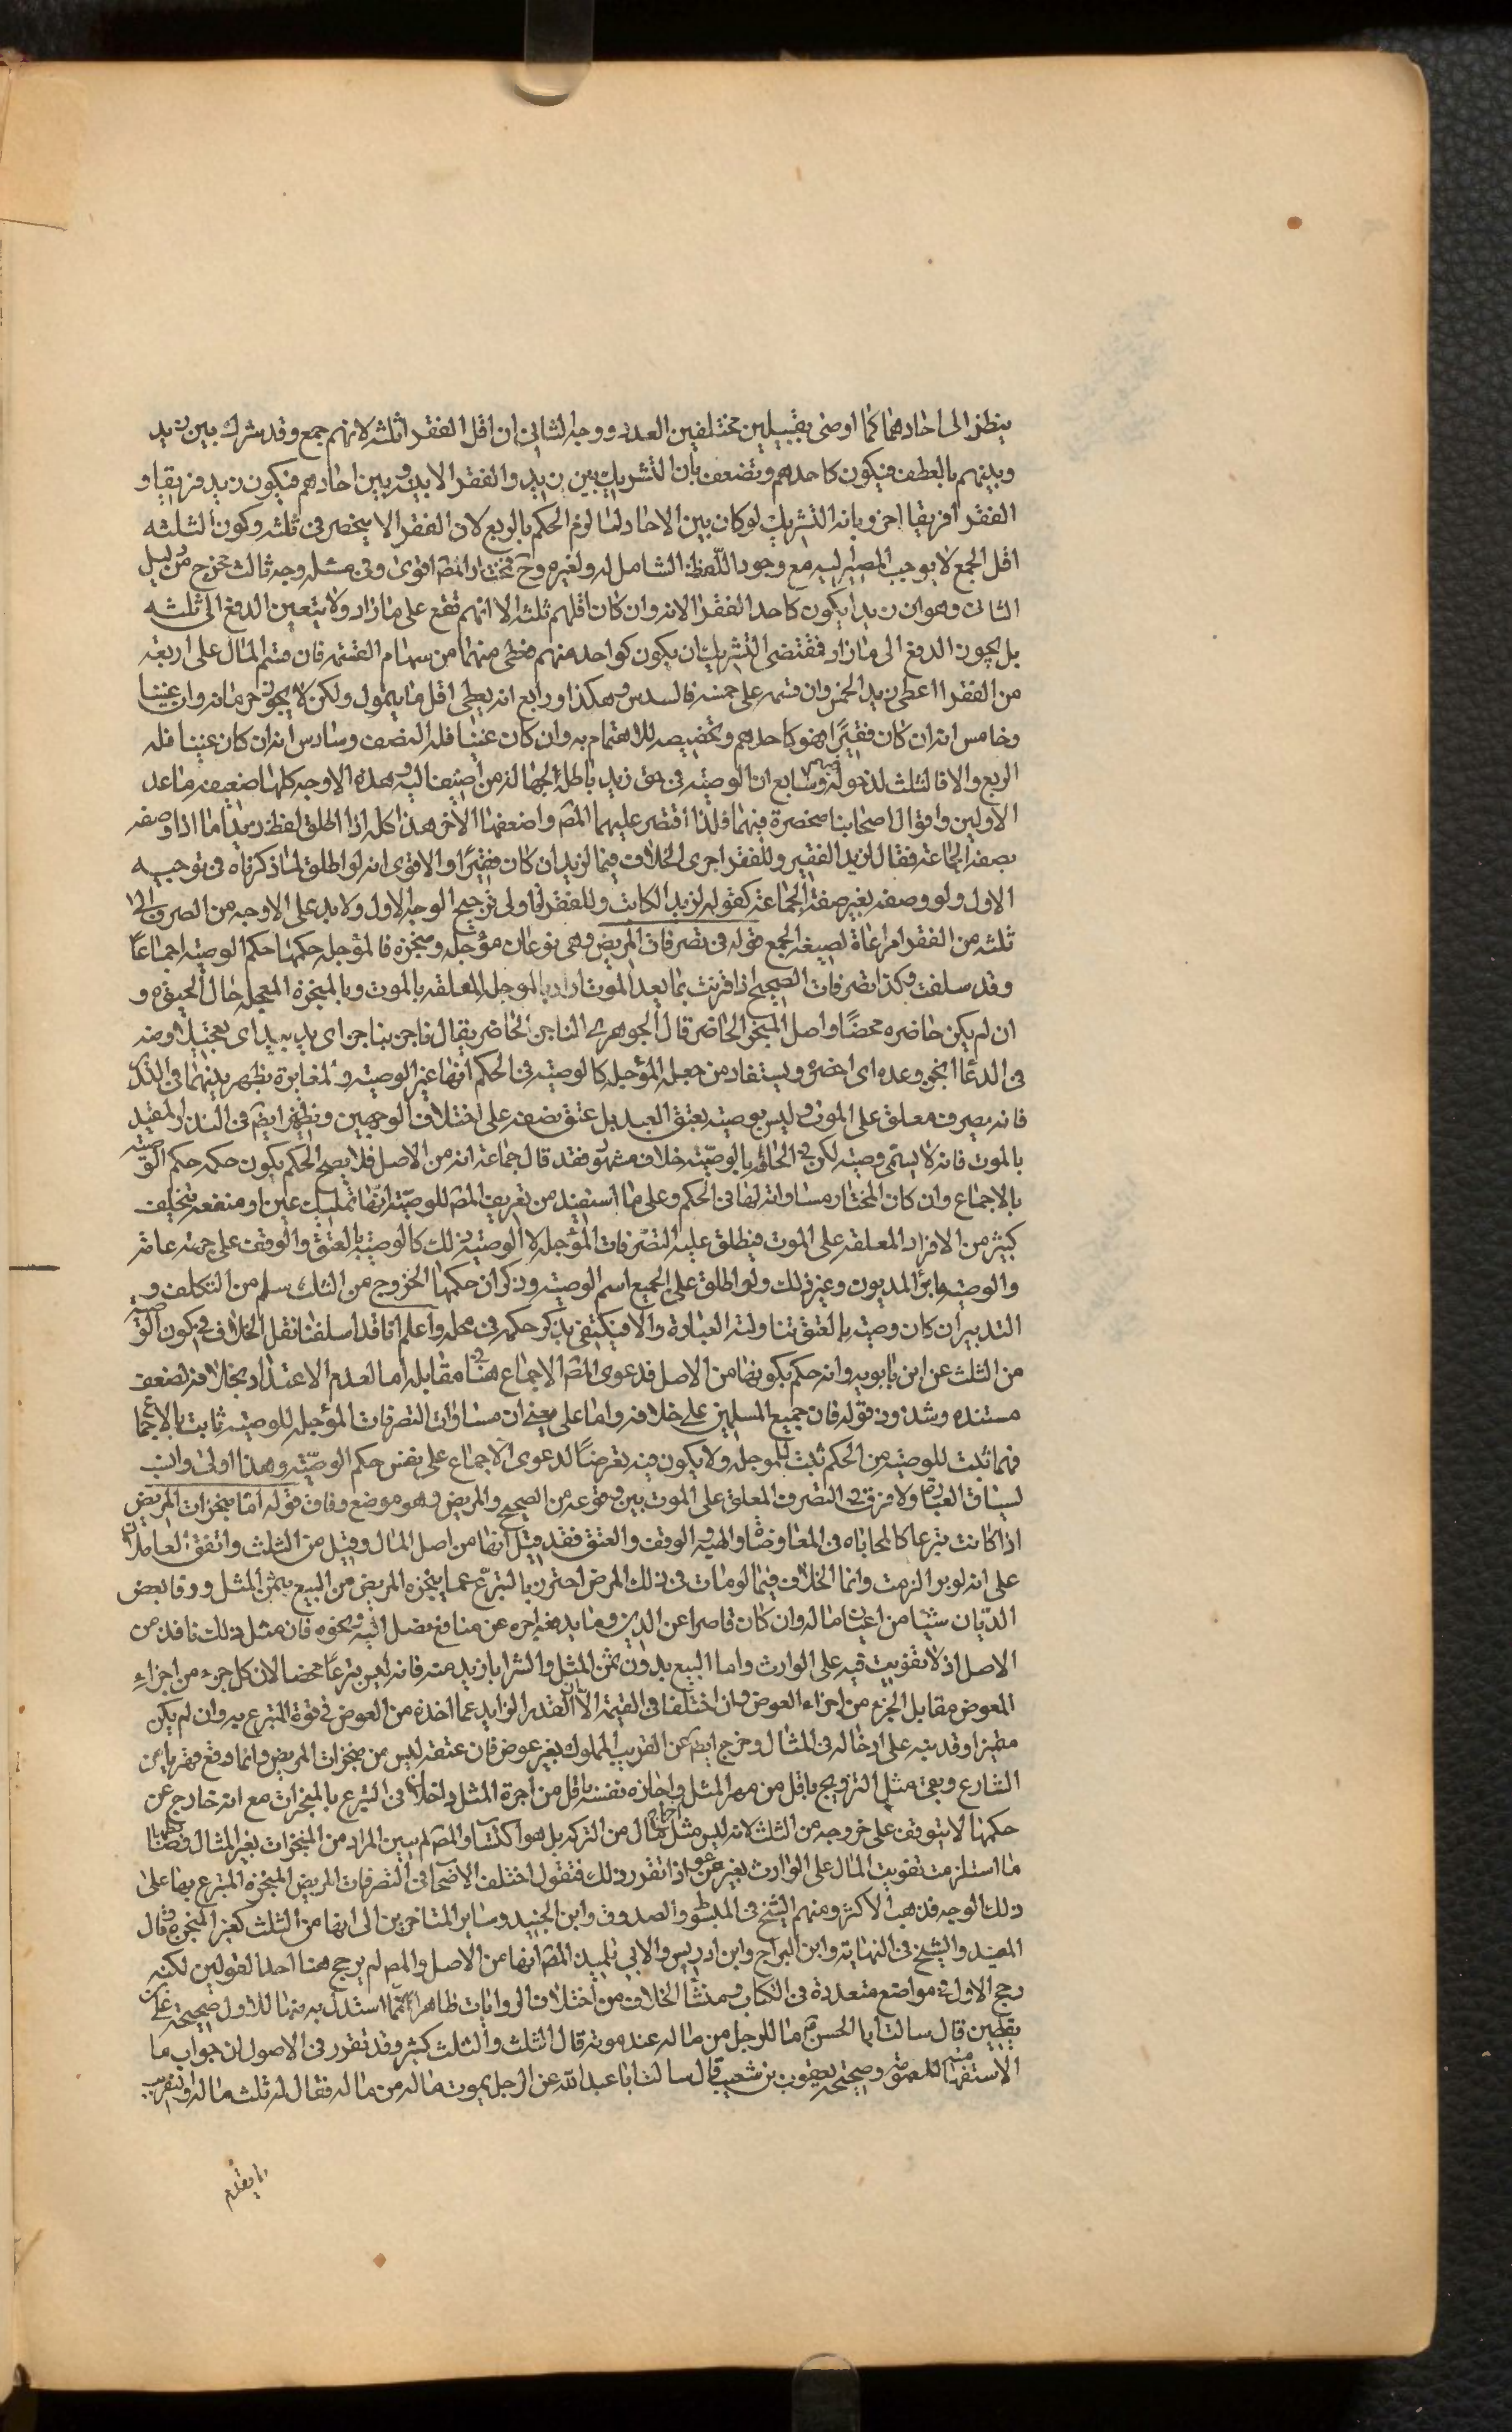 ينظر الى احادهما كما اوصى بقبيلين مختلفين العدد ووجه الثاني ان اقل الفقرا ثلثه لانهم جمع وقد شرك بين زيد
وبينهم بالعطف فيكون كاحدهم ويضعف بان التشريك بين زيد والفقرا لا بينه وبين احادهم فيكون زيد فريقا و
الفقرا فريقا اخر وبانه التشريك لو كان بين الاحاد لما لزم الحكم بالربع لان الفقرا لا ينحصر في ثلثه وكون الثلثه
اقل الجمع لا يوجب المصير اليه مع وجود اللفظ الشامل له ولغيره وح فمختار المصّ اقوى وفي مسئله وجه ثالث مخرج من دليل
الثاني وهو ان زيدا يكون كاحد الفقرا الا انه وان كان اقلهم ثلثه الا انهم تقع على ما زاد ولا يتعين الدفع الى ثلثه
بل يجوز الدفع الى ما زاد فمقتضى التشريك ان يكون كواحد منهم فطى منهما من سهام القسمه فان قسم المال على اربعة
من الفقرا اعطى زيد الخمس وان قسمه على خمسه فالسدس وهكذا ورابع انه يعطى اقل ما يتمول ولكن لا يجوز حرمانه وان غنيا
وخامس انه ان كان فقيرًا فهو كاحدهم وتخصيصه للاهتمام به وان كان غنيا فله النصف وسادس انه ان كان غنيا فله
الربع والا فالثلث لدخوله فيهم وسابع ان الوصيه في حق زيد باطله لجهالة من اضيف اليه وهذه الاوجه كلها ضعيفه ما عدا
الاولين واقوال اصحابنا منحصرة فيهما فلذا اقتصر عليهما المصّ واضعفها الاخر هذا كله اذا اطلق لفظ زيد اما اذا وصفه
بصفه الجماعة فقال لزيد الفقير وللفقرا جرى الخلاف فيما لزيد ان كان فقيرًا والاقوى انه لو اطلق لما ذكرناه في توجيه
الاول ولو وصفه بغير صفة الجماعة كقوله لزيد الكاتب وللفقرا فاولى ترجيح الوجه الاول ولا بد على الاوجه من الصرف الى
ثلثه من الفقرا مراعاة لصيغه الجمع قوله في تصرفات المريض وهي نوعان مؤجله ومنجزه فالمؤجله حكمها حكم الوصيه اجماعًا
وقد سلفت وكذا تصرفات الصحيح اذا قرنت بما بعد الموت اراد بالمؤجله المعلقه بالموت وبالمنجزه المعجله حال الحيوة و
ان لم يكن حاضره محضًا واصل المنجز الحاضر قال الجوهري الناجز الحاضر يقال ناجز بناجز اي يد بيد اي تعجيل ومنه
في الدعا انجز وعده اي احضره ويستفاد من جعله المؤجله كالوصيه في الحكم انها غير الوصيه والمغايرة يظهر بينهما في التدبير
فانه تصرف معلق على الموت وليس بوصيه بعتق العبد بل عتق بصفه على اختلاف الوجهين ويظهر ايضً في النذر المقيد
بالموت فانه لا يسمى وصيه لكن في الحاقه بالوصيّه خلاف مشهور فقد قال جماعة انه من الاصل فلا يصح الحكم بكون حكمه حكم الوصيه
بالاجماع وان كان المختار مساواته لها في الحكم وعلى ما استفيد من تعريف المصّ للوصيّه انها تمليك عين او منفعه يتخلف
كثير من الافراد المعلقه على الموت فيطلق عليه التصرفات المؤجله لا الوصيه وذلك كالوصيه بالعتق والوقف على جهة عامة
والوصيه بابراء المديون وغير ذلك ولو اطلق على الجميع اسم الوصيه وذكر ان حكمها الخروج من الثلث سلم من التكلف و
التدبير ان كان وصية بالعتق تناولته العبارة والا فيكتفى بذكر حكمه في محله واعلم انا قد اسلفنا نقل الخلاف في كون الوصيه
من الثلث عن ابن بابويه وانه حكم بكونها من الاصل فدعوى المصّ الاجماع هنا في مقابله اما لعدم الاعتداد بخلافه لضعف
مستنده وشذوذ قوله فان جميع المسلمين على خلافه واما على معنى ان مساوات التصرفات المؤجله للوصيه ثابت بالاجماع
فمما ثبت للوصيه من الحكم ثبت للمؤجله ولا يكون فيه تعرضًا لدعوى الاجماع على نفس حكم الوصيّه وهذا اولى وانسب
لسياق العباره ولا فرق في التصرف المعلق على الموت بين وقوعه من الصحيح والمريض وهو موضع وفاق قوله اما منجزات المريض
اذا كانت تبرعا كالمحاباه في المعاوضات والهبه والوقف والعتق فقد قيل انها من اصل المال وقيل من الثلث واتفق القائلان
على انه لو برا لزمت وانما الخلاف فيما لو مات في ذلك المرض احترز بالتبرع عما ينجزه المريض من البيع بثمن المثل ووفا بعض
الديّان شيئا من اعيان ماله وان كان قاصرا عن الدين وما يدفعه اجره عن منافع نصل اليه ونحوه فان مثل ذلك نافذ من
الاصل اذ لا تفويت فيه على الوارث واما البيع بدون ثمن المثل والشرا بازيد منه فانه ليس تبرعًا محضا لان كل جزء من اجزاء
المعوض مقابل الجزء من اجزاء العوض وان اختلفا في القيمة الا ان القدر الزايد عما اخذه من العوض في قوة المتبرع به وان لم يكن
متميزا وقد نبه على ادخاله في المثال وخرج ايضً عن القريب المملوك بغير عوض فان عتقه ليس من منجزات المريض وانما وقع قهريا من
الشارع وبقي مثل التزويج باقل من مهر المثل واجازه نفسه باقل من اجرة المثل داخلا في التبرع بالمنجزات مع انه خارج عن
حكمها لا يتوقف على خروجه من الثلث لانه ليس مثل اخراج مال من التركه بل هو اكتساب والمصّ لم يبين المراد من المنجزات بغير المثال
ما استلزمت تفويت المال على الوارث بغير عوض اذا تقرر ذلك فنقول اختلف الاصحاب في التصرفات المريض المنجزه المتبرع بها على
ذلك الوجه فذهب الاكثر ومنهم الشيخ في المبسوط والصدوق وابن الجنيد وساير المتاخرين الى انها من الثلث كغير المنجزه وقال
المفيد والشيخ في النهاية وابن البراج وابن ادريس والابي تلميذ المصّ انها من الاصل والمصّ لم يرجح هنا احد القولين لكنه
رجح الاول في مواضع متعددة في الكتاب ومنشأ الخلاف من اختلاف الروايات ظاهرا فمما استدل به منها للاول صحيحة علي بن
يقطين قال سالت ابا الحسن عم ما للرجل من ماله عند موته قال الثلث والثلث كثير وقد تقرر في الاصول ان جواب ما
الاستفهاميه للعموم وصحيحة يعقوب بن شعيب قال سالت ابا عبد الله عن الرجل يموت ما له من ماله فقال له ثلث ماله والتقريب
ما تقدم